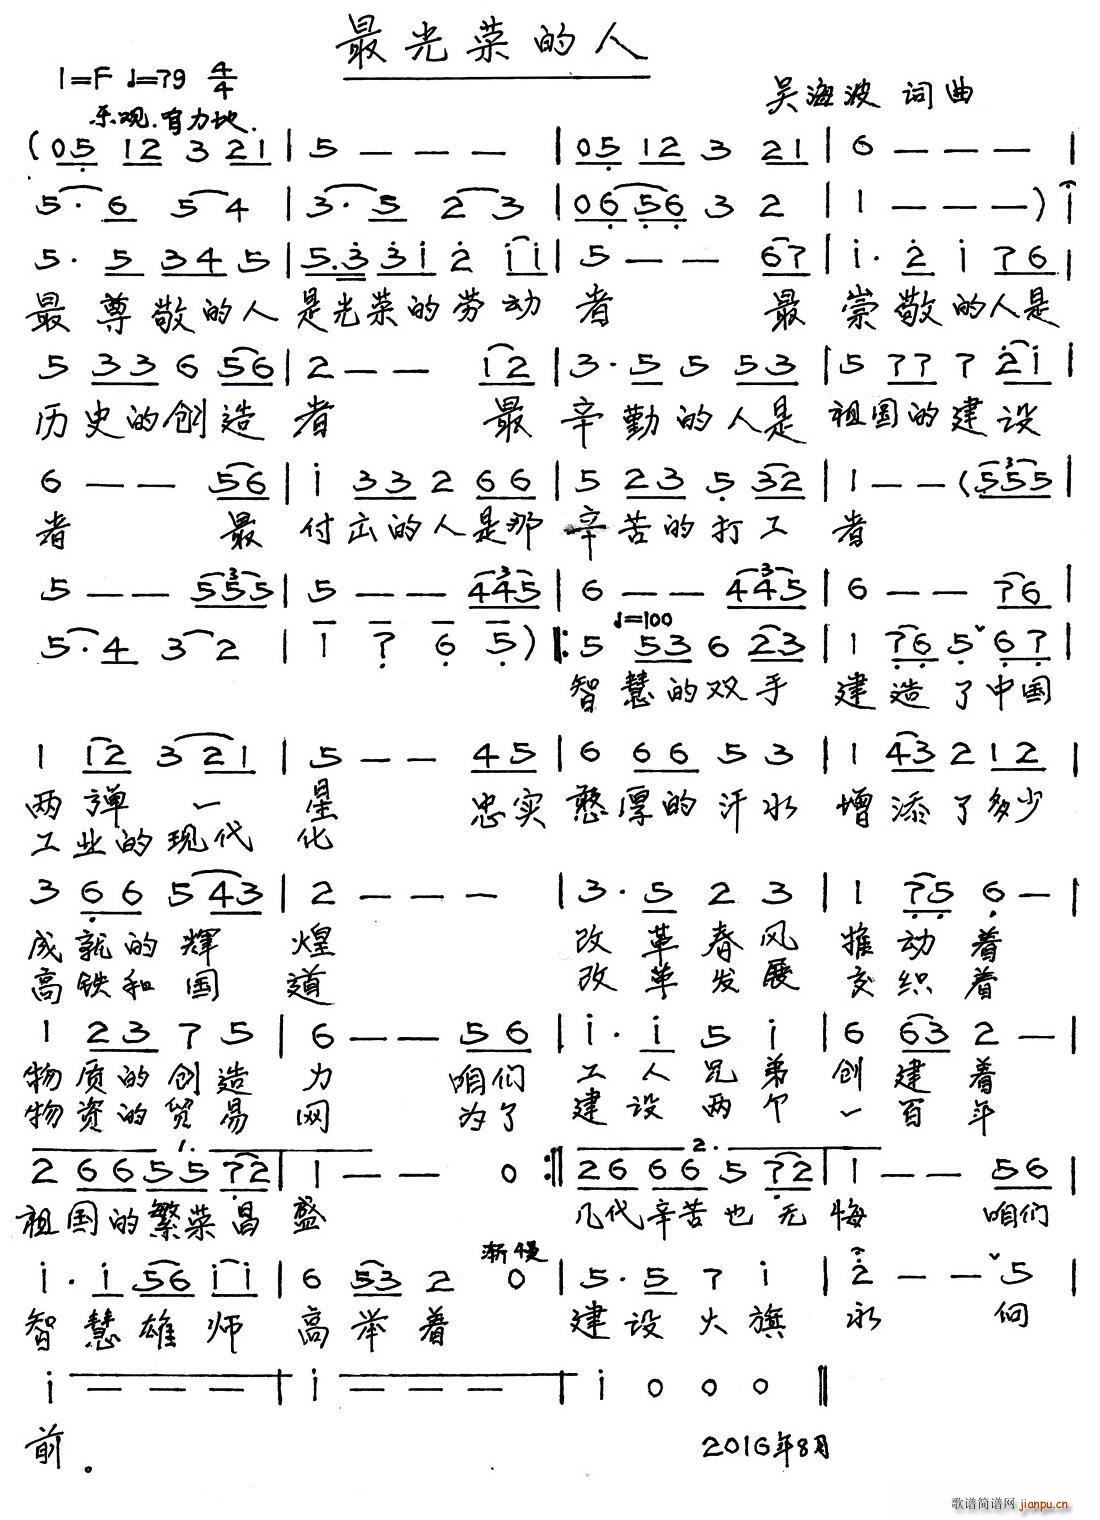 最光荣的人
1=F ♩=79 4/4
吴海波 词曲
乐观.有力地.
(05 12 3 21 | 5 — — — | 05 12 3 21 | 6 — — — |
5· 6 5 4 | 3· 5 2 3 | 06 56 3 2 | 1 — — —) i |
5· 5 34 5 | 5.3 31 2 ii | 5 — — 67 | i· 2 i 76 |
最尊敬的人 是光荣的劳动 者 最 崇敬的人是
5 33 6 56 | 2 — — 12 | 3· 5 5 53 | 5 77 7 2i |
历史的创造 者 最 辛勤的人是 祖国的建设
6 — — 56 | i 33 2 66 | 5 23 5 32 | 1 — — (555 |
者 最 付出的人是那 辛苦的打工 者
5 — — 555 | 5 — — 445 | 6 — — 445 | 6 — — 76 |
♩=100
5· 4 3 2 | 1 7 6 5) ‖: 5 53 6 23 | 1 76 5 67 |
智慧的双手 建造了中国
1 12 3 21 | 5 — — 45 | 6 66 5 3 | 1 43 2 12 |
两弹一 星 忠实 憨厚的汗水 增添了多少
工业的现代 化
3 66 5 43 | 2 — — — | 3· 5 2 3 | 1 75 6 — |
成就的辉 煌 改革春风 推动着
高铁和国 道 改革发展 交织着
1 23 7 5 | 6 — — 56 | i· i 5 i | 6 63 2 — |
物质的创造 力 咱们 工人兄弟 创建着
物资的贸易 网 为了 建设两个 一百年
1. 2.
2 66 55 72 | 1 — — 0 :‖ 26 66 5 72 | 1 — — 56 |
祖国的繁荣昌 盛 几代辛苦也无 悔 咱们
渐慢
i· i 56 ii | 6 53 2 0 | 5· 5 7 i | 2 — — 5 |
智慧雄师 高举着 建设大旗 永 向
i — — — | i — — — | i 0 0 0 ‖
前。
2016年8月
歌谱简谱网 jianpu.cn